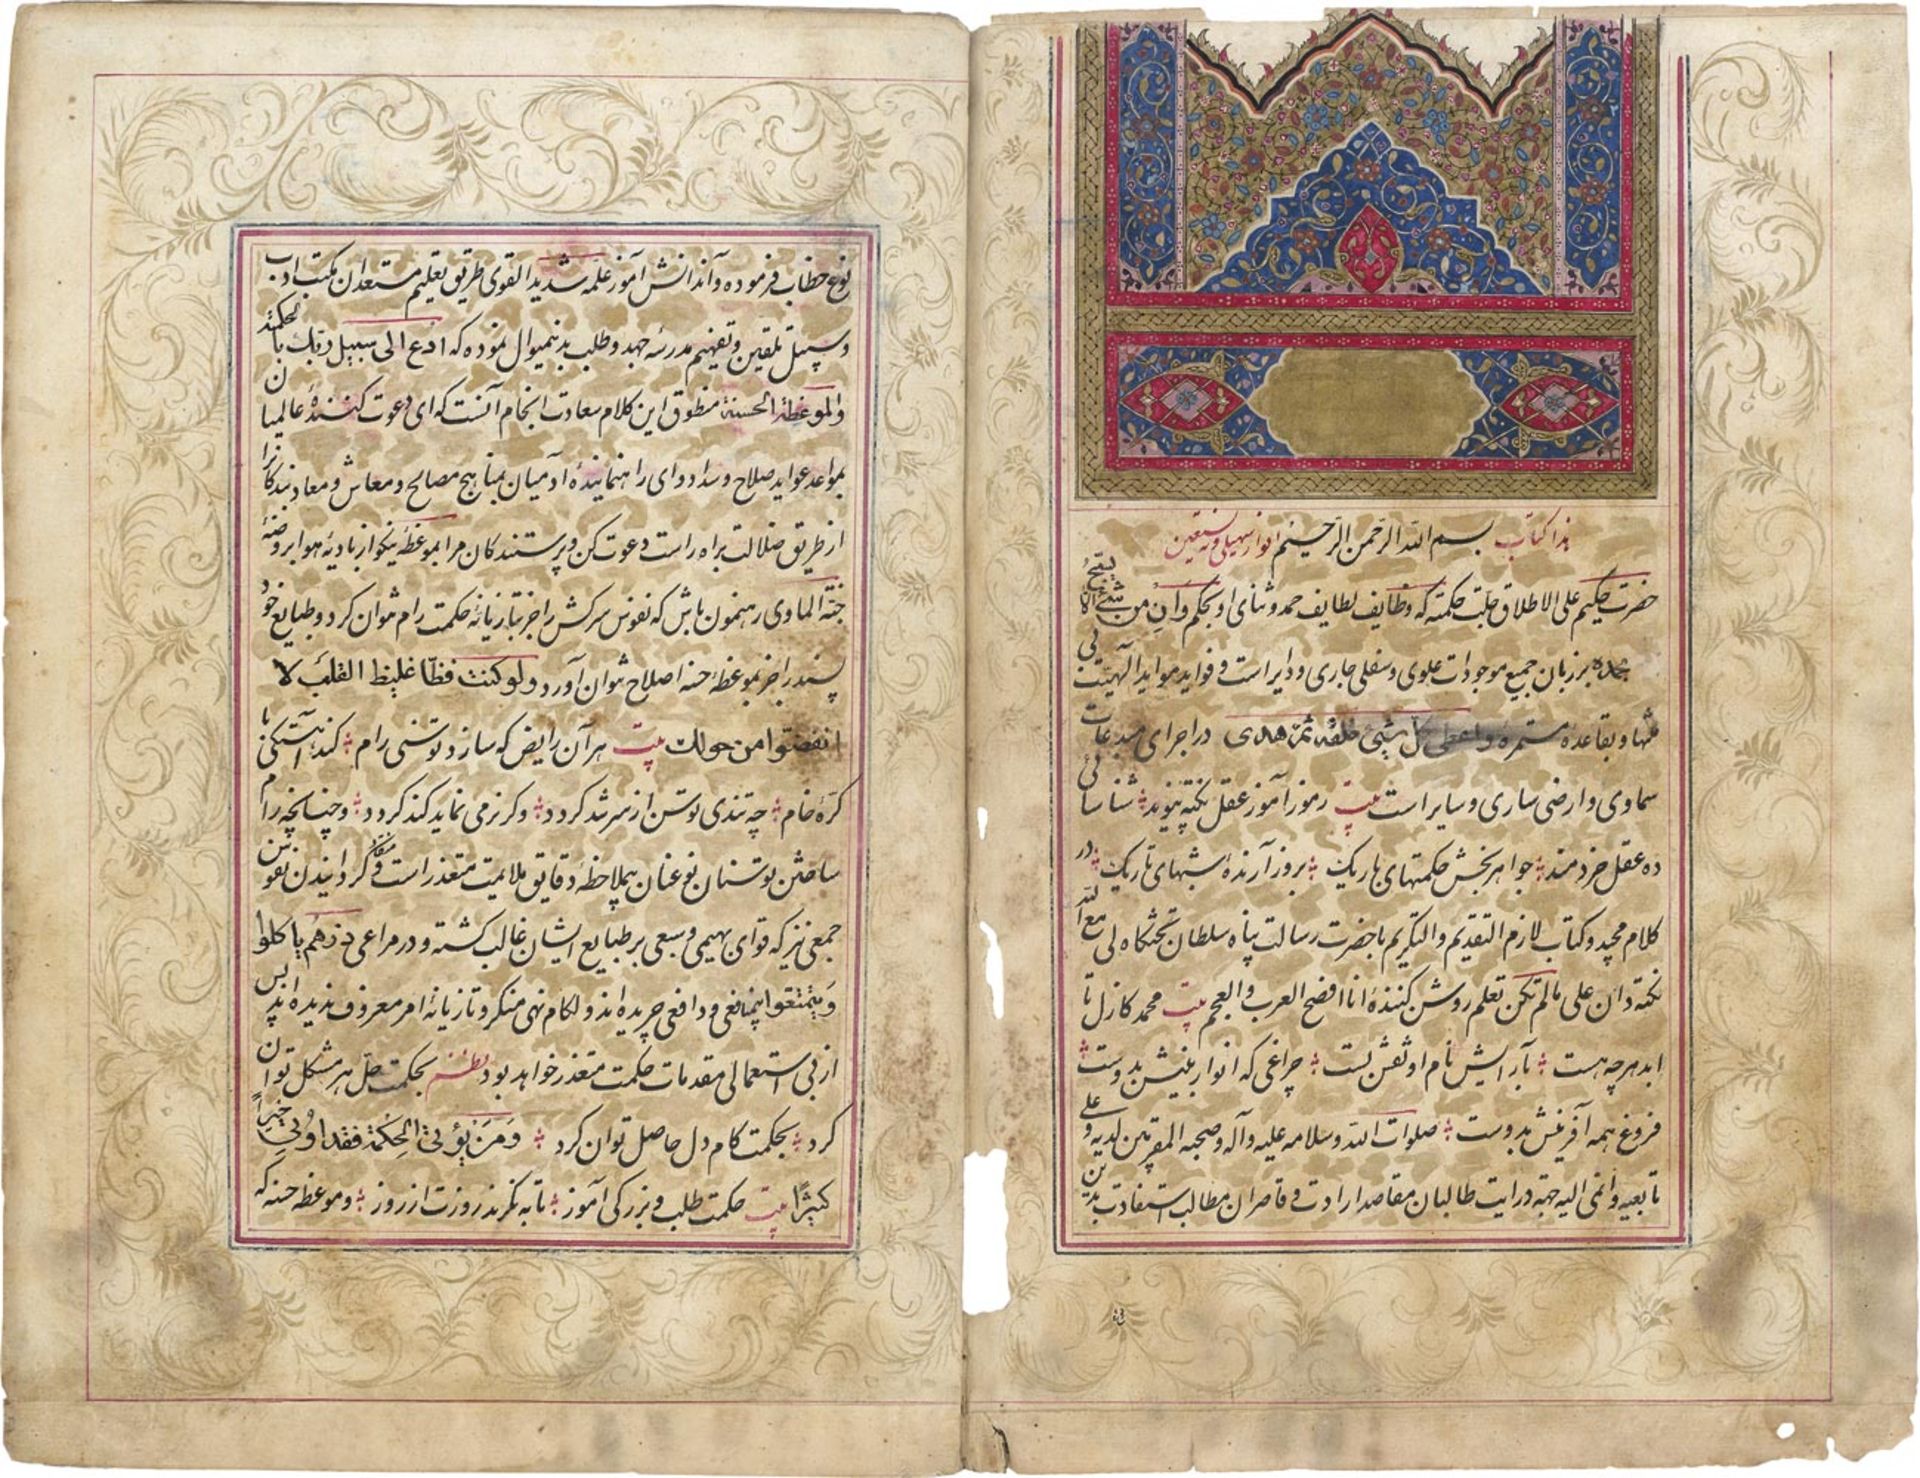 هذا کتاب بسم الله الرحمن الرحیم انوار سهیلی و به نستعین
حضرت حکیم علی الاطلاق جلت حکمته که وظایف لطایف حمد و ثنای او بحکم وان من شئ الا یسبح
بحمده بر زبان جمیع موجودات علوی و سفلی جاری و دایر است و فواید مواید الهیت بی
منتها و بقاعده مستمره واعطی کل شئ خلقه ثم هدی در اجرای مبدعات
سماوی و ارضی ساری و سایر است بیت رموز آموز عقل نکته پیوند شناسائی
ده عقل خردمند جواهر بخش حکمتهای باریک بروز آرندهٔ شبهای تاریک در
کلام مجید و کتاب لازم التقدیم والتکریم با حضرت رسالت پناه سلطان تختکاه لی مع الله
نکته دان علی مالم تکن تعلم روشن کنندهٔ انا افصح العرب والعجم بیت محمد کازل تا
ابد هرچه هست بآرایش نام او نقش بست چراغی که انوار بینش بدوست
فروغ همه آفرینش بدوست صلوات الله وسلامه علیه وآله وصحبه المقربین لدیه وعلی
تابعیه وانمی الیه جهة درایت طالبان مقاصد ارادت و قاصران مطالب استفادت بدین
نوع خطاب فرموده و آن دانش آموز علمه شدید القوی طریق تعلیم مستعدان مکتب ادب
و سبیل تلقین و تفهیم مدرسه جهد و طلب بدینمنوال نموده که ادع الی سبیل ربک بالحکمة
والموعظة الحسنة منطوق این کلام سعادت انجام آنست که ای دعوت کنندهٔ عالمیان
بمواعد عواید صلاح و سداد و ای راهنمایندهٔ آدمیان بمناهج مصالح و معاش و معاد بندکانرا
از طریق ضلالت براه راست دعوت کن و پرستندکان مرا بموعظهٔ نیکو از بادیهٔ هوا بروضهٔ
جنة الماوی رهنمون باش که نفوس سرکش را جز بتازیانهٔ حکمت رام نتوان کرد و طبایع خود
پسند را جز بموعظهٔ حسنه اصلاح نتوان آورد ولو کنت فظا غلیظ القلب لا
انفضوا من حولک بیت هر آن رایض که سازد توسنی رام کند آهستکی با
کرهٔ خام چه تندی توسن از سر تند کردد وکر نرمی نماید کند کردد و چنانچه رام
ساختن توسنان نوعنان بیملاحظهٔ دقایق ملایمت متعذر است منقاد کردانیدن نفوس
جمعی نیز که قوای بهیمی و سبعی بر طبایع ایشان غالب کشته و در مراعی ذرهم یاکلوا
ویتمتعوا بیمانعی و دافعی چریده اند و لکام نهی منکر و تازیانهٔ امر معروف ندیده اند پس
از بی استعمالی مقدمات حکمت متعذر خواهد بود نظم بحکمت حل هر مشکل توان
کرد بحکمت کام دل حاصل توان کرد ومن یؤتی الحکمة فقد اوتی خیراً
کثیرًا بیت حکمت طلب و بزرکی آموز تا به نکرند روزت از روز و موعظه حسنه که